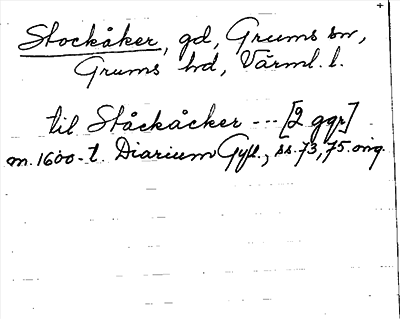 Stockåker, gd, Grums sn,
Grums hd, Värml. l.
til Ståckåcker --- [2 ggr]
m. 1600-t. Diarium Gyll., ss. 73, 75. orig.